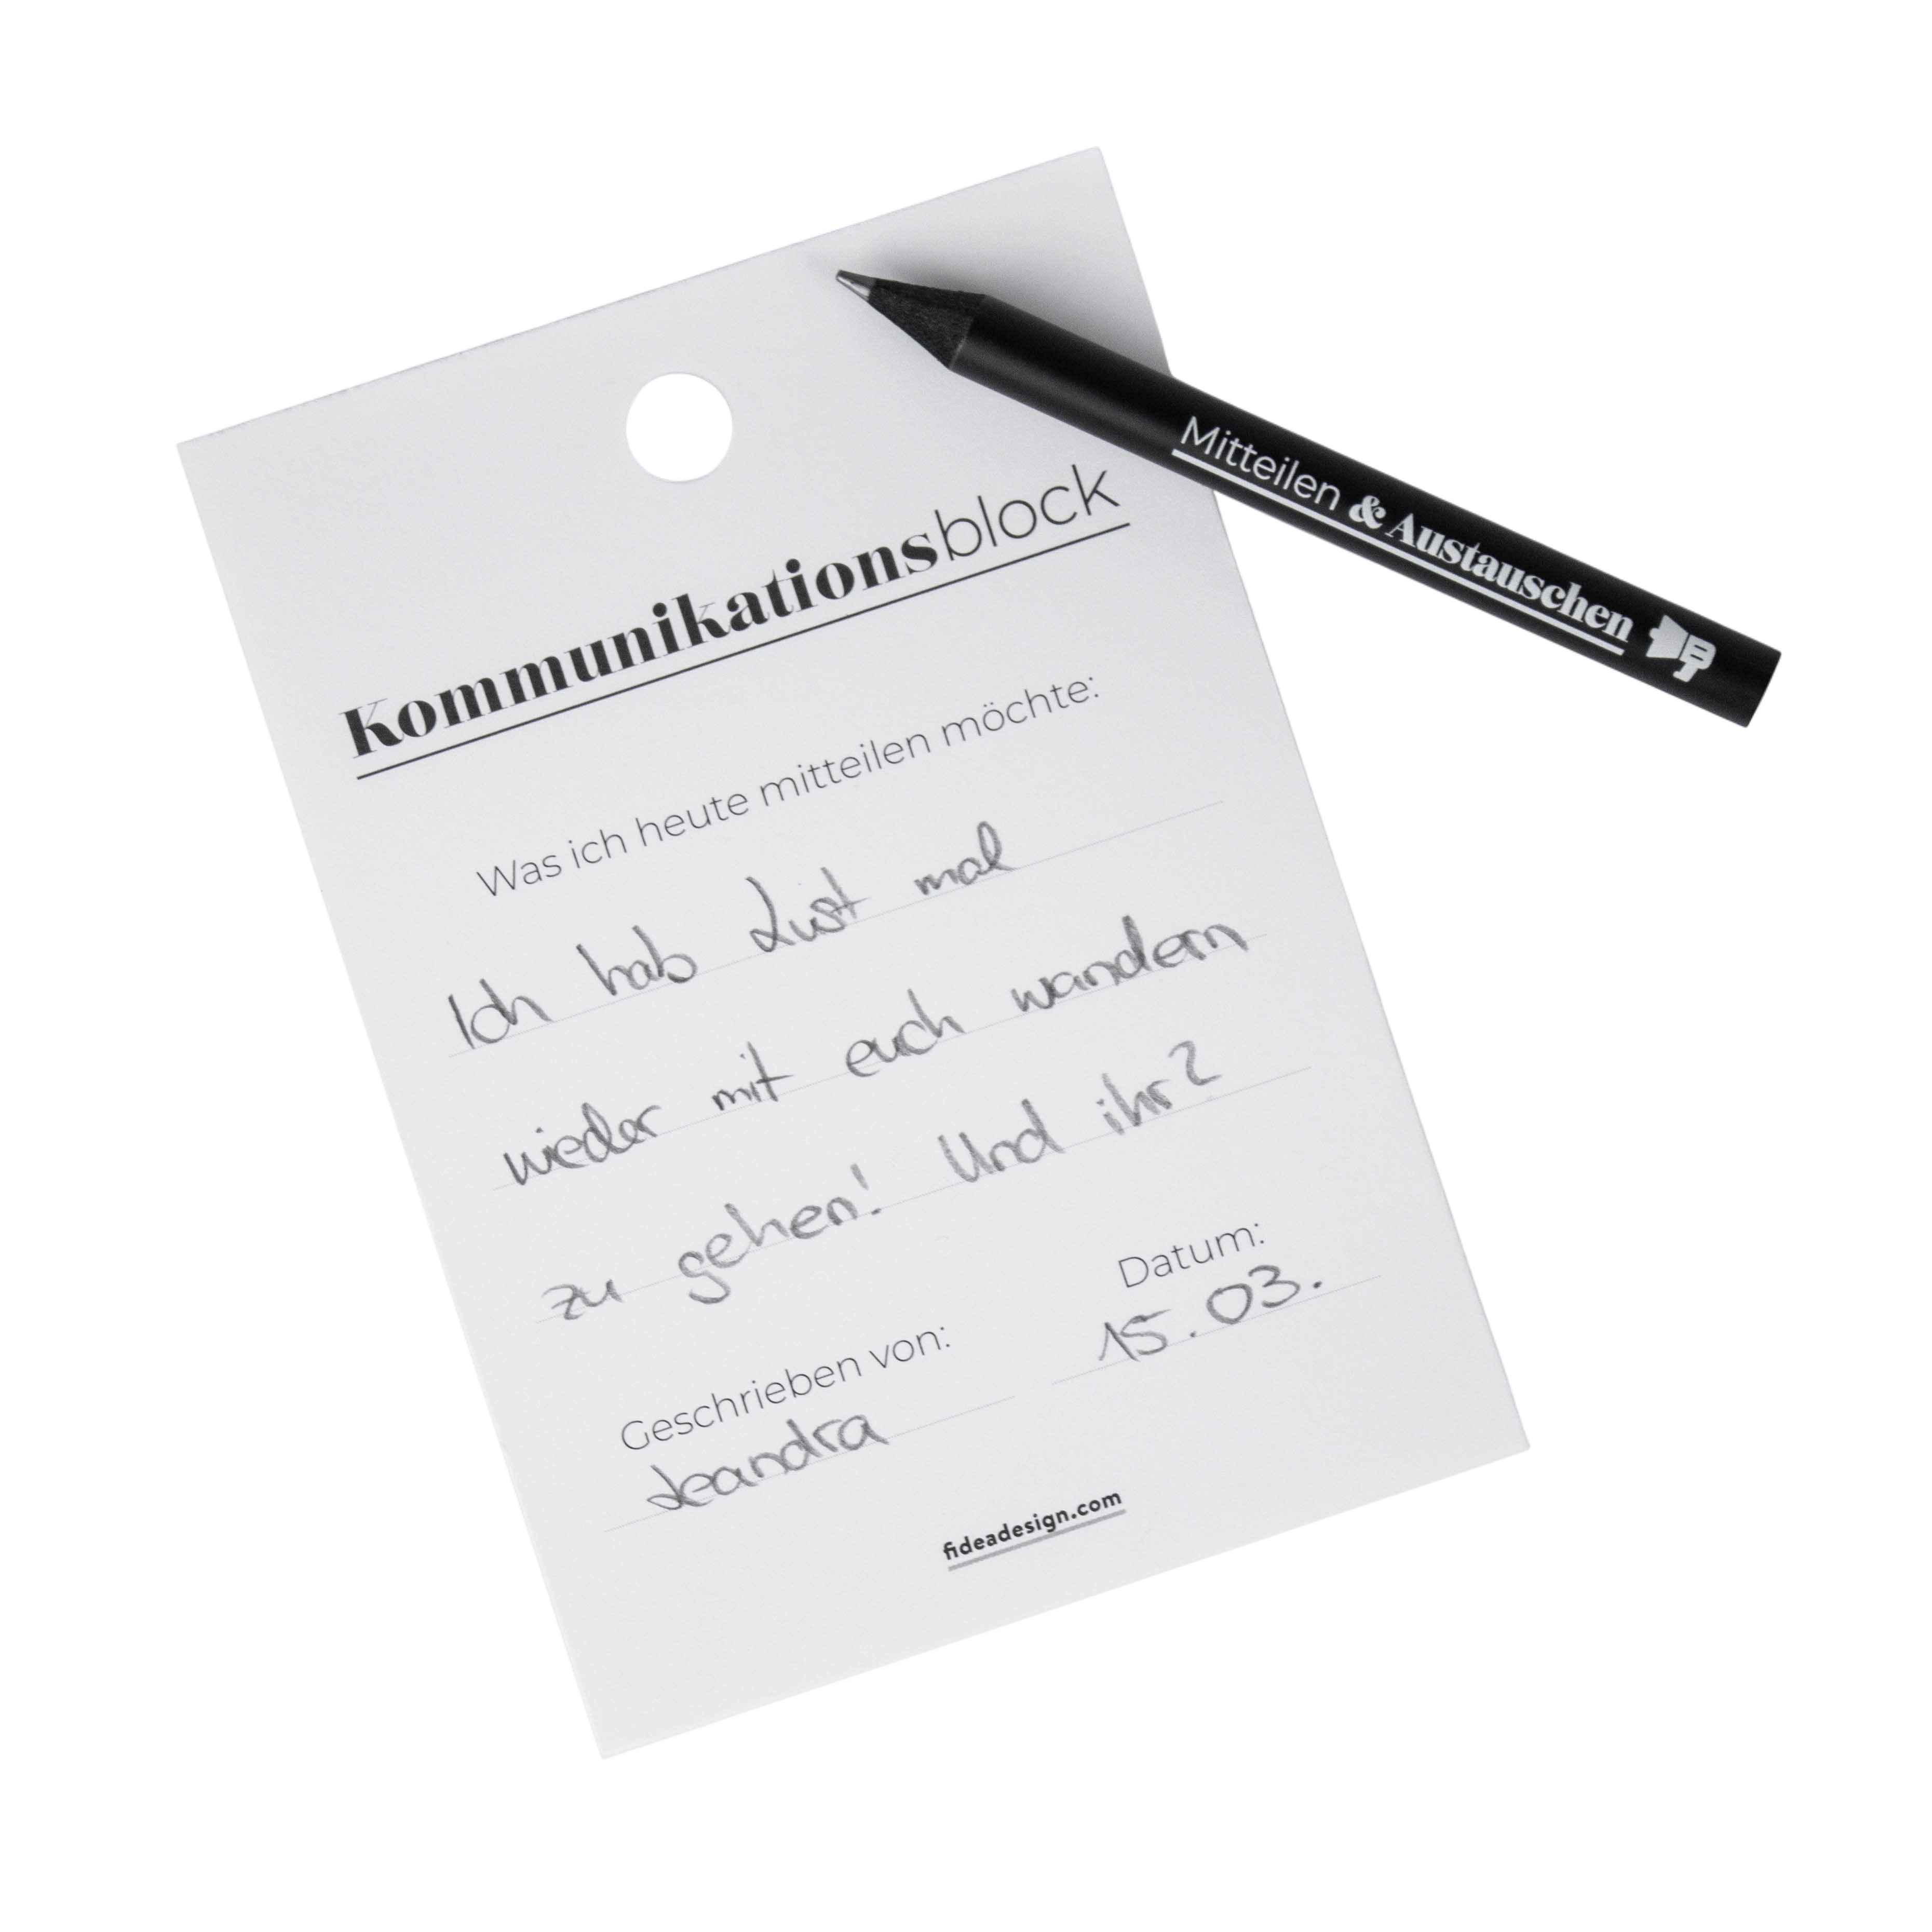 Kommunikationsblock
Was ich heute mitteilen möchte:
Ich hab Lust mal
wieder mit euch wandern
zu gehen! Und ihr?
Geschrieben von:
Leandra
Datum:
15.03.
fideadesign.com
Mitteilen & Austauschen